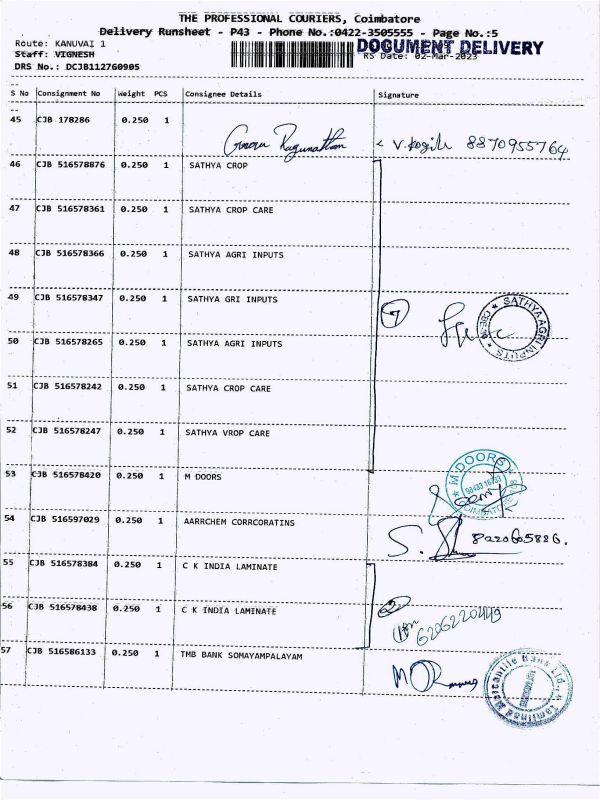 THE PROFESSIONAL COURIERS, Coimbatore
Delivery Runsheet - P43 - Phone No.:0422-3505555 - Page No.:5
Route: KANUVAI 1
DOCUMENT DELIVERY
Staff: VIGNESH
RS Date: 02-Mar-2023
DRS No.: DCJB112760905
S No Consignment No Weight PCS Consignee Details Signature
45 CJB 178286 0.250 1
V. Kogila 8870955764
46 CJB 516578876 0.250 1 SATHYA CROP
47 CJB 516578361 0.250 1 SATHYA CROP CARE
48 CJB 516578366 0.250 1 SATHYA AGRI INPUTS
49 CJB 516578347 0.250 1 SATHYA GRI INPUTS
7
SATHYA AGRI INPUTS
50 CJB 516578265 0.250 1 SATHYA AGRI INPUTS
51 CJB 516578242 0.250 1 SATHYA CROP CARE
52 CJB 516578247 0.250 1 SATHYA VROP CARE
53 CJB 516578420 0.250 1 M DOORS
M DOORS
COIMBATORE
54 CJB 516597029 0.250 1 AARRCHEM CORRCORATINS
55 CJB 516578384 0.250 1 C K INDIA LAMINATE
56 CJB 516578438 0.250 1 C K INDIA LAMINATE
2
57 CJB 516586133 0.250 1 TMB BANK SOMAYAMPALAYAM
Tamilnad Mercantile Bank Ltd.,